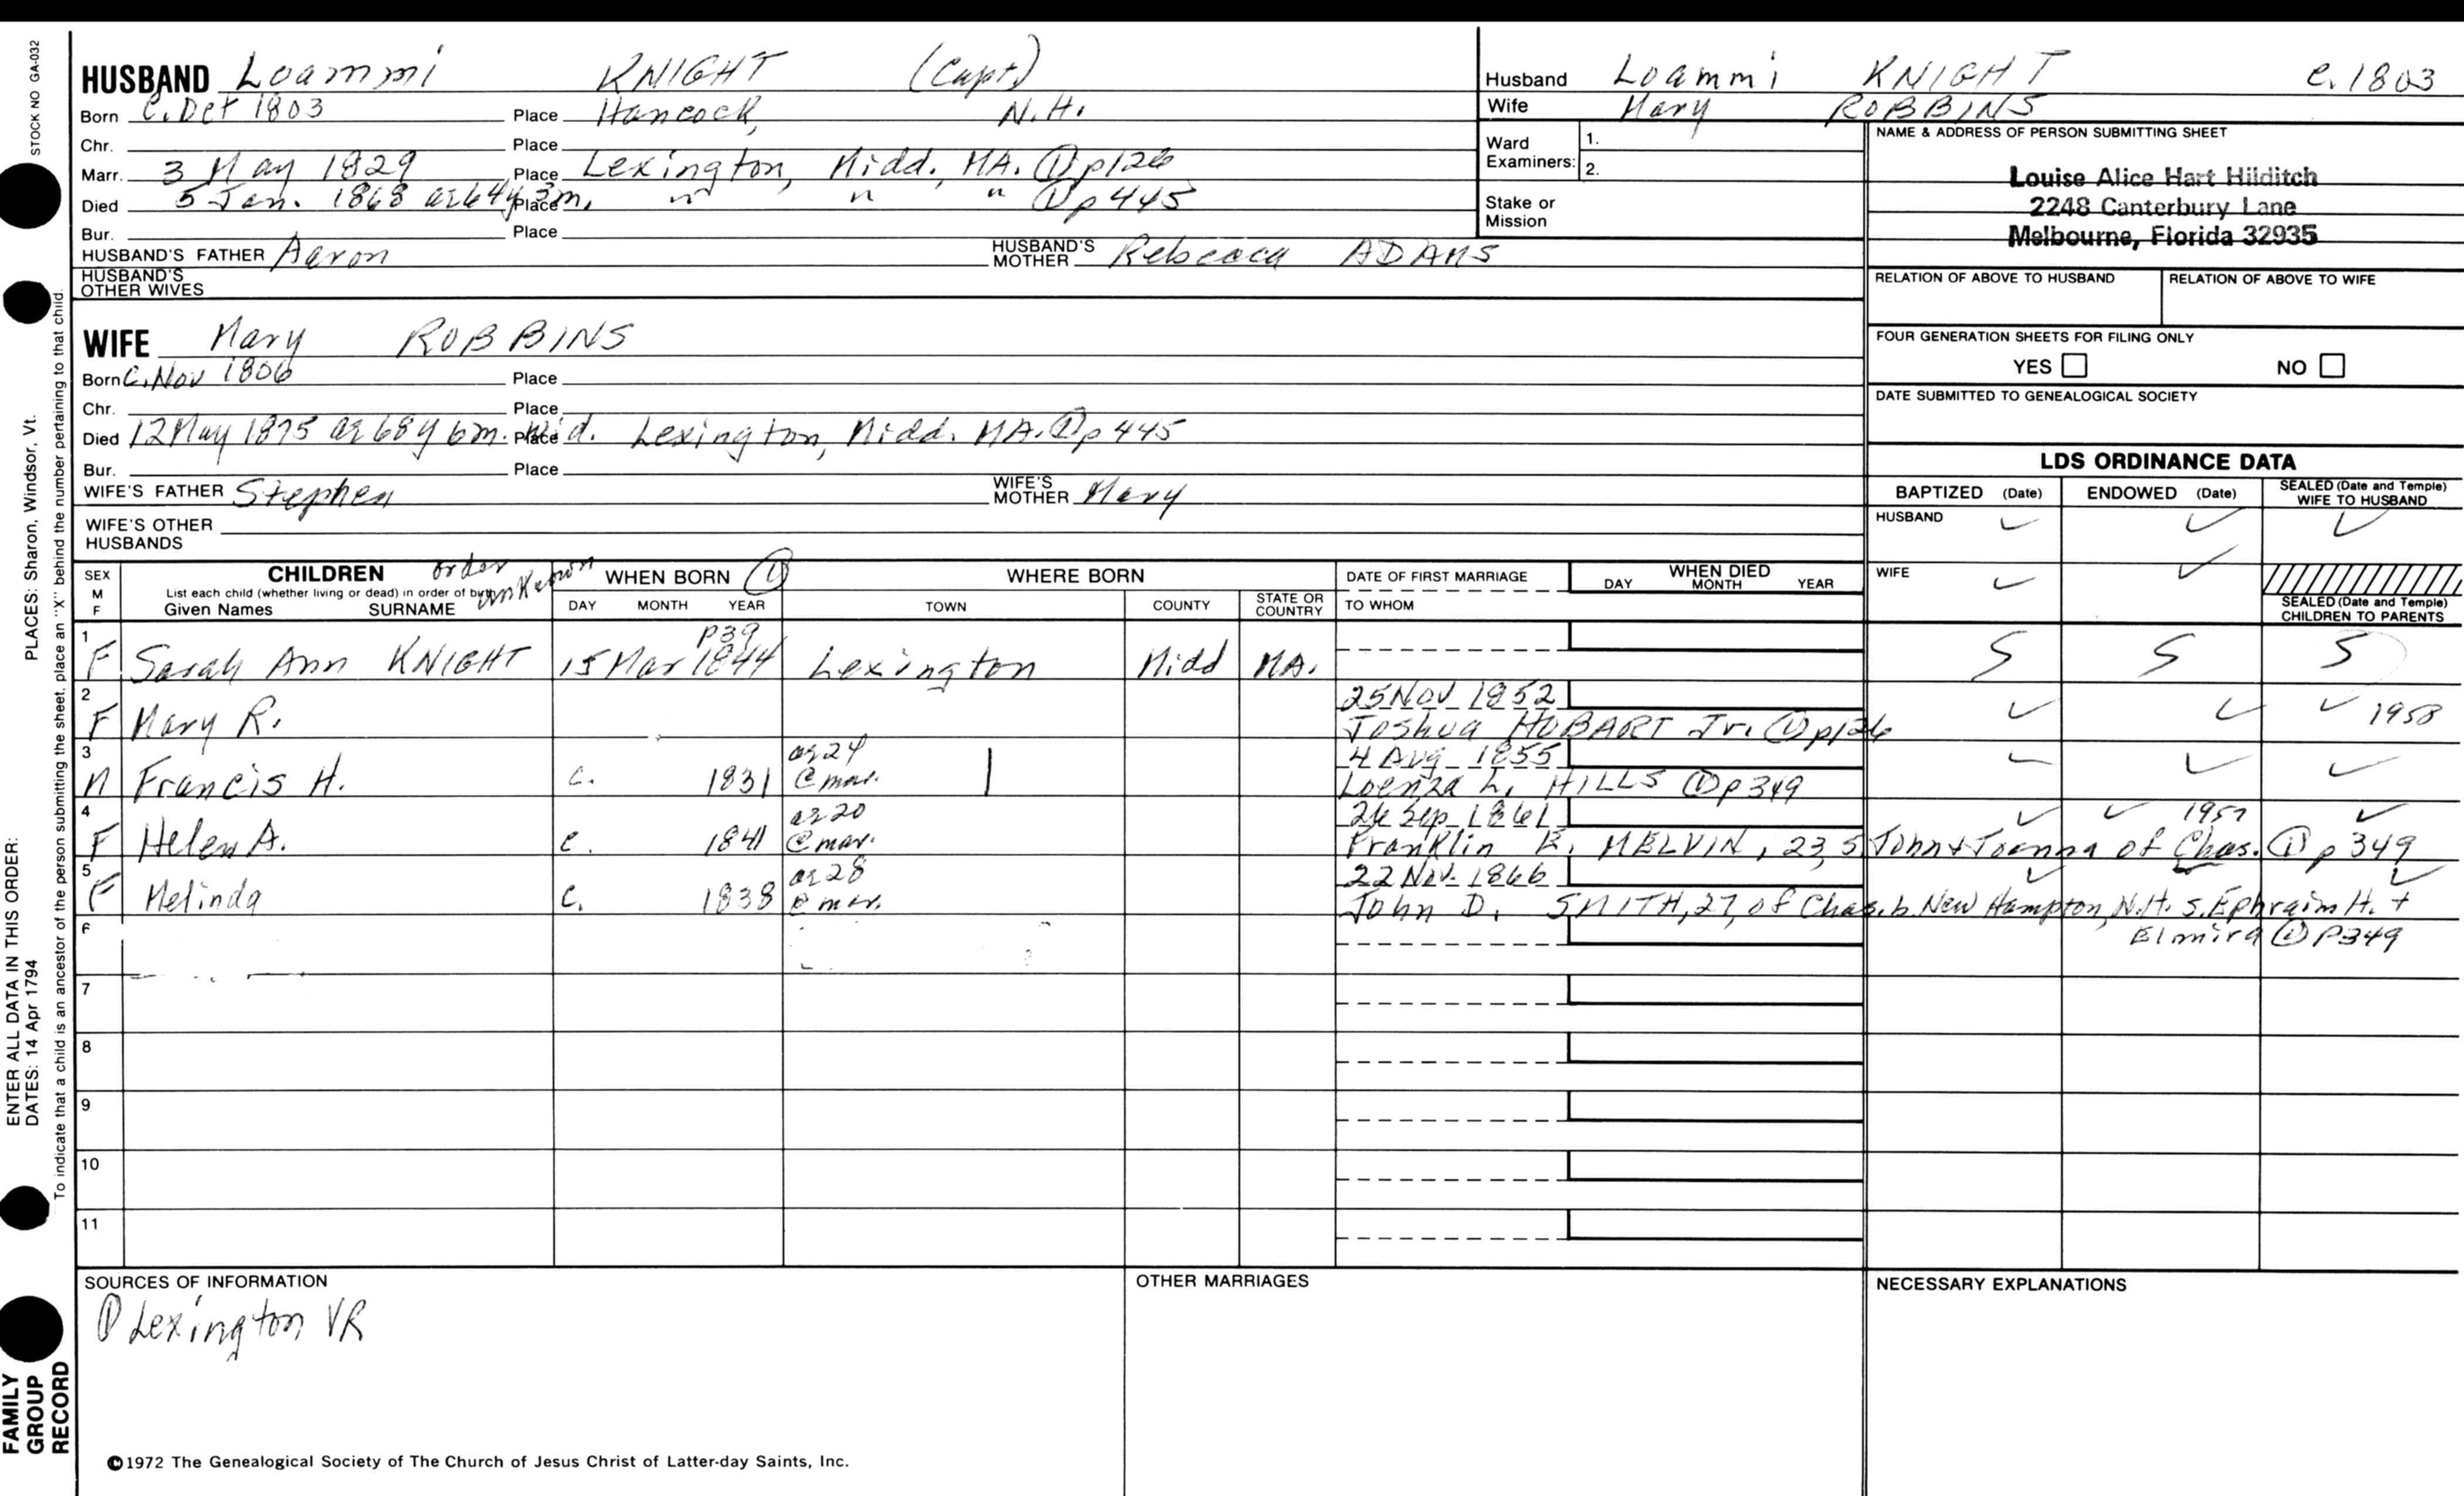 STOCK NO GA-032
HUSBAND Loammi KNIGHT (Capt)
Born C. Oct 1803 Place Hancock, N.H.
Chr. Place
Marr. 3 May 1829 Place Lexington, Midd., MA. ① p126
Died 5 Jan. 1868 ae 64y 3m. Place " " " ① p 445
Bur. Place
HUSBAND'S FATHER Aaron HUSBAND'S MOTHER Rebecca ADAMS
HUSBAND'S OTHER WIVES
WIFE Mary ROBBINS
Born C. Nov 1806 Place
Chr. Place
Died 12 May 1875 ae 68y 6m. wid. Place Lexington, Midd. MA. ① p 445
Bur. Place
WIFE'S FATHER Stephen WIFE'S MOTHER Mary
WIFE'S OTHER HUSBANDS
Husband Loammi KNIGHT C. 1803
Wife Mary ROBBINS
Ward Examiners: 1.
2.
Stake or Mission
NAME & ADDRESS OF PERSON SUBMITTING SHEET
Louise Alice Hart Hilditch
2248 Canterbury Lane
Melbourne, Florida 32935
RELATION OF ABOVE TO HUSBAND RELATION OF ABOVE TO WIFE
FOUR GENERATION SHEETS FOR FILING ONLY
YES NO
DATE SUBMITTED TO GENEALOGICAL SOCIETY
LDS ORDINANCE DATA
BAPTIZED (Date) ENDOWED (Date) SEALED (Date and Temple) WIFE TO HUSBAND
HUSBAND ✓ ✓ ✓
WIFE ✓ ✓
SEALED (Date and Temple) CHILDREN TO PARENTS
SEX M F CHILDREN order unknown
List each child (whether living or dead) in order of birth
Given Names SURNAME
WHEN BORN ① DAY MONTH YEAR
WHERE BORN TOWN COUNTY STATE OR COUNTRY
DATE OF FIRST MARRIAGE TO WHOM
WHEN DIED DAY MONTH YEAR
1 F Sarah Ann KNIGHT 15 Mar 1844 p39 Lexington Midd MA. S S S
2 F Mary R. 25 Nov 1852 ✓ ✓ ✓ 1958
Joshua HOBART Jr. ① p126
3 M Francis H. c. 1831 ae 24 @ mar. 4 Aug 1855 ✓ ✓ ✓
Loenza L. HILLS ① p 349
4 F Helen A. c. 1841 ae 20 @ mar. 26 Sep 1861 ✓ ✓ 1957 ✓
Franklin E. MELVIN, 23, S. John & Joanna of Chas. ① p 349
5 F Melinda c. 1838 ae 28 @ mar. 22 Nov. 1866 ✓ ✓
John D. SMITH, 27, of Chas. b. New Hampton, N.H. s. Ephraim H. +
Elmira ① p349
6
7
8
9
10
11
SOURCES OF INFORMATION
① Lexington VR
OTHER MARRIAGES
NECESSARY EXPLANATIONS
©1972 The Genealogical Society of The Church of Jesus Christ of Latter-day Saints, Inc.
ENTER ALL DATA IN THIS ORDER:
DATES: 14 Apr 1794 PLACES: Sharon, Windsor, Vt.
To indicate that a child is an ancestor of the person submitting the sheet, place an "X" behind the number pertaining to that child.
FAMILY
GROUP
RECORD